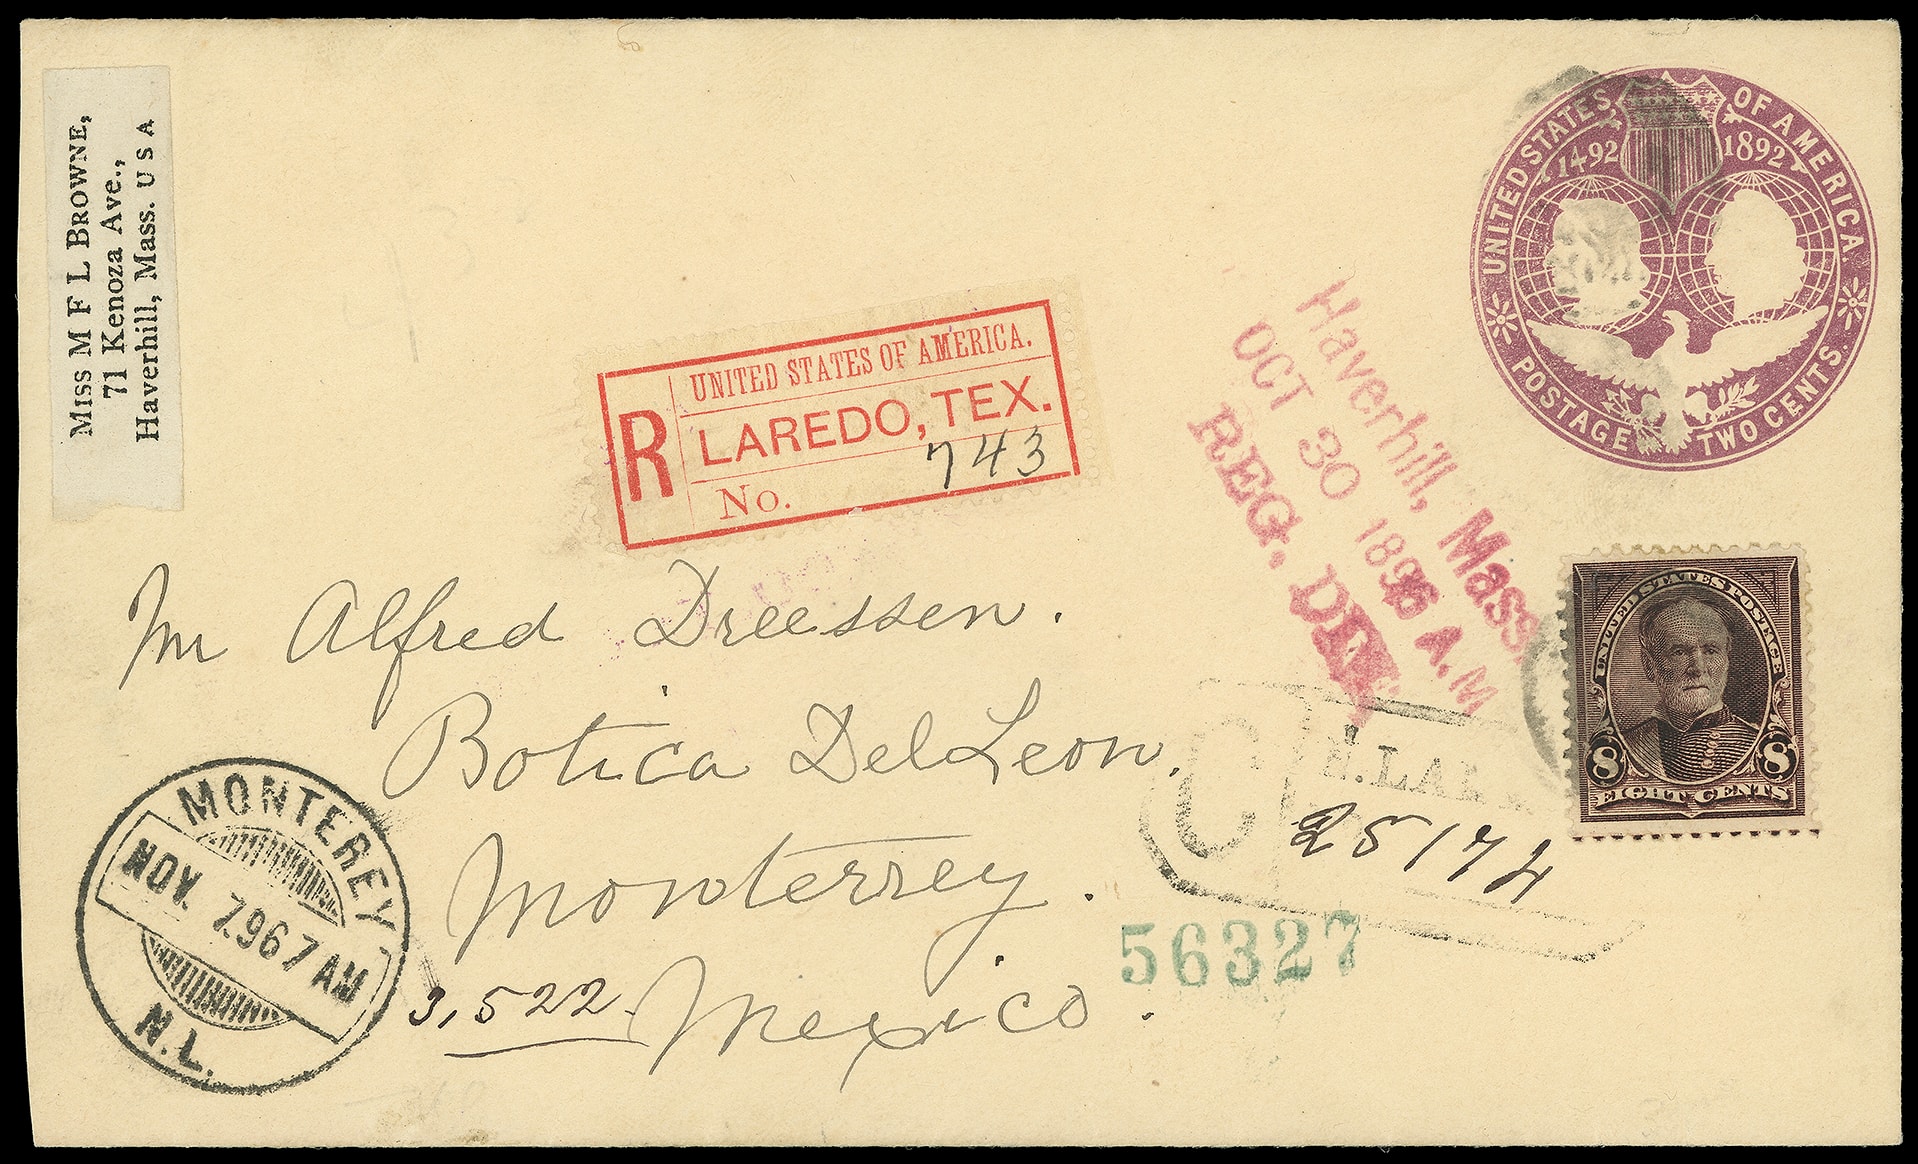 Miss M F L Browne,
71 Kenoza Ave.,
Haverhill, Mass. U S A
UNITED STATES OF AMERICA.
1492 1892
POSTAGE TWO CENTS.
UNITED STATES OF AMERICA.
R LAREDO, TEX.
No. 743
Haverhill, Mass.
OCT 30 1896 A.M
REG. DIV.
UNITED STATES POSTAGE
8 8
EIGHT CENTS
Mr Alfred Dreessen.
Botica Del Leon.
Monterrey.
Mexico.
25174
56327
3,522
MONTEREY
NOV. 7.96 7 AM
N.L.